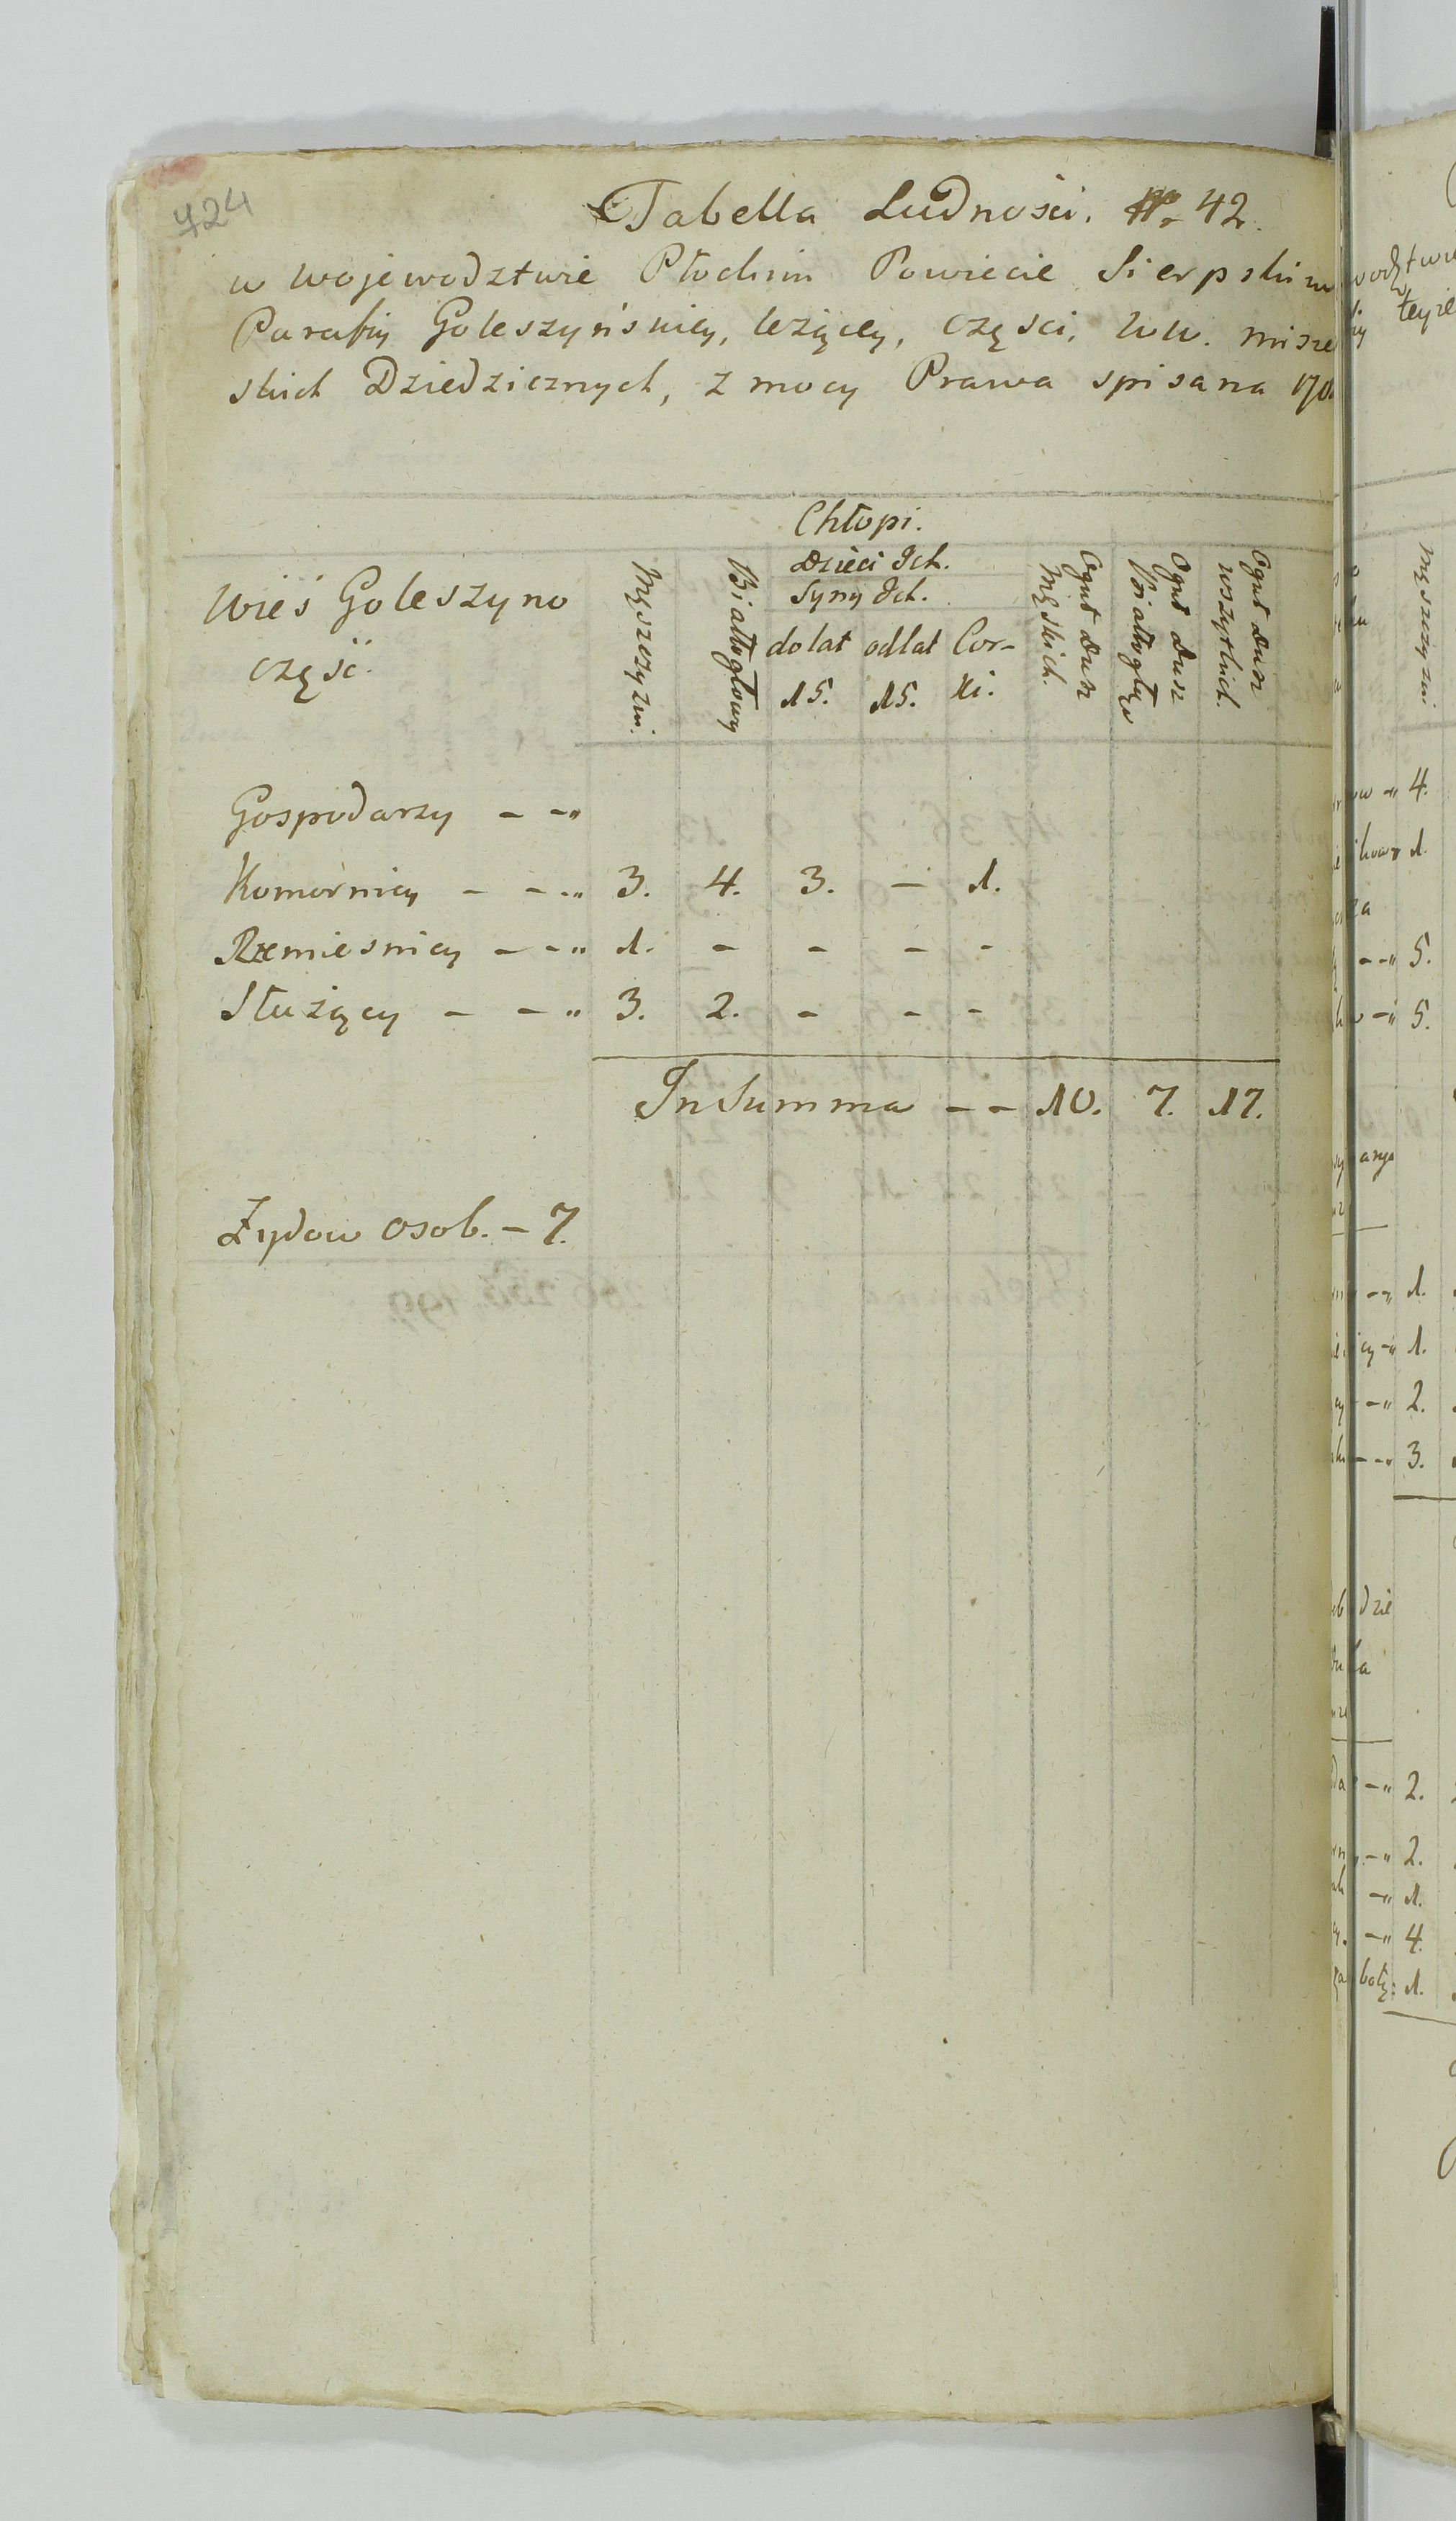 724
Tabella Ludności. Nr 42.
w Wojewodztwie Płockim Powiecie Sierpskim
Parafiy Goleszyńskiey, leżącey, części, WW.
skich Dziedzicznych, z mocy Prawa spisana
Chłopi.
Wieś Goleszyno
część.
Męszczyzni.
Białłogłowy
Dzieci Ich.
Syny Ich.
do lat 15.
od lat 15.
Cor-
ki.
Ogul Dusz
Męskich.
Ogul Dusz
Białłogłów
Ogul Dusz
wszytkich.
Gospodarzy - - "
Komornicy - - - " 3. 4. 3. - 1.
Rzemiesnicy - - - " 1. - - - -
Służący - - - " 3. 2. - - -
In Summa - - 10. 7. 17.
Żydow osob. - 7.
Męszczyzni
4.
1.
5.
5.
1.
1.
2.
3.
2.
2.
1.
4.
1.